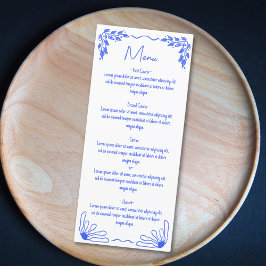 Menu
~First Course~
Lorem ipsum dolor sit amet, consectetur adipiscing elit,
sed do eiusmod tempor incididunt ut labore et dolore
magna aliqua.
Second Course
Lorem ipsum dolor sit amet, consectetur adipiscing elit,
sed do eiusmod tempor incididunt ut labore et dolore
magna aliqua.
Lorem ipsum dolor sit amet, consectetur adipiscing elit,
sed do eiusmod tempor incididunt ut labore et dolore
magna aliqua.
Lorem ipsum dolor sit amet, consectetur adipiscing elit,
sed do eiusmod tempor incididunt ut labore et dolore
magna aliqua.
~Dessert~
Lorem ipsum dolor sit amet, consectetur adipiscing elit,
sed do eiusmod tempor incididunt ut labore et dolore
magna aliqua.